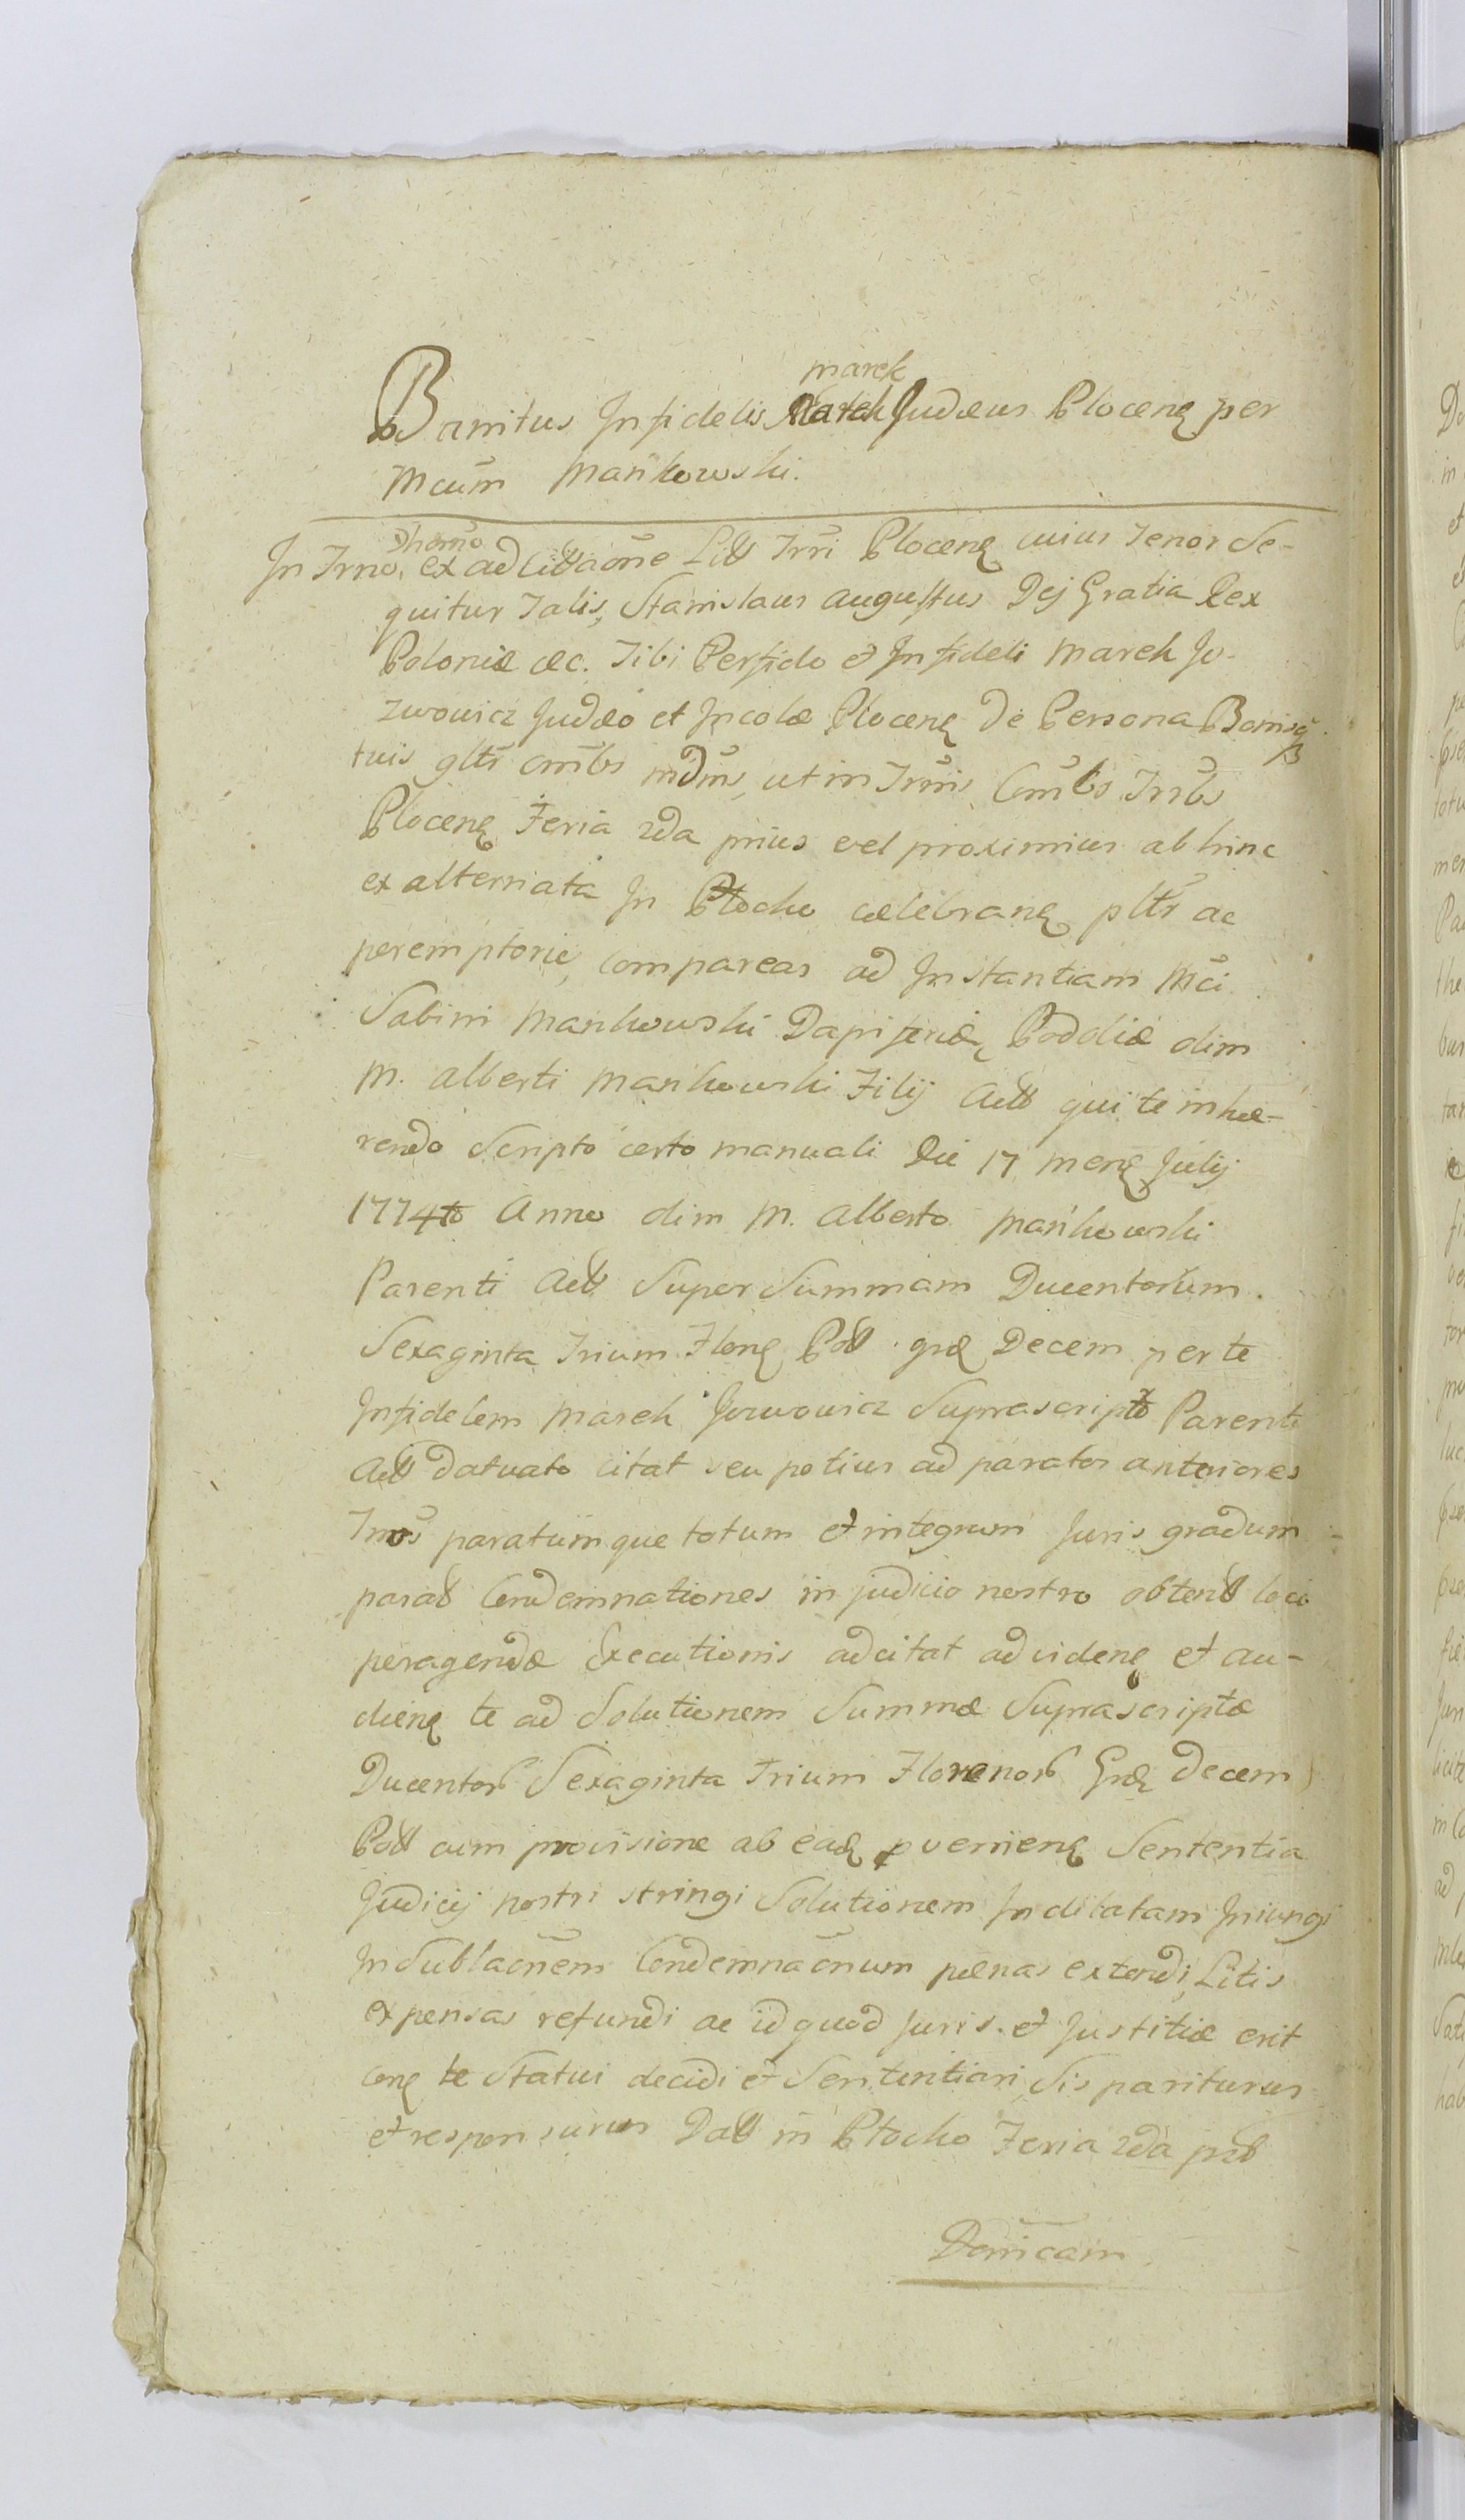 marek
Banitus Infidelis Marek Judæus Plocen per
Mcum Mańkowski.
In Trno, ex adcittaõne Litt Trri Plocen cuius Tenor Se-
quitur Talis, Stanislaus Augustus Dej Gratia Rex
Poloniæ æc. Tibi Perfido et Infideli Marek Jo-
zwowicz Judæo et Incolæ Plocen De Persona Bonisq
tuis gltr õmbs mdms, ut in Trmis Cõmbs Trrbs
Plocen Feria 2da prius vel proximius abhinc
ex alternata In Płocko celebran pltr ac
peremptorie, compareas ad Instantiam Mci
Sabini Mankowski Dapiferidæ Podoliæ olim
M. Alberti Mańkowski Filij Act qui te inhæ-
rendo Scripto certo manuali Die 17 Men Julij
1774to Anno olim M. Alberto Mańkowski
Parenti Act Super Summam Ducentorum
Sexaginta Trium Flon Poll. gr Decem per te
Infidelem Marek Jozwowicz Suprascripto Parenti
Act datuato citat seu potius ad paratos anteriores
Tmos paratumque totum et integrum Juris gradum
parat Condemnationes in judicio nostro obtent loco
peragendæ Executionis adcitat ad viden et au-
dien te ad Solutionem Summæ Suprascriptæ
Ducentor Sexaginta Trium Florenor Gr Decem
Poll cum provisione ab ead pvenien Sententia
Judicij nostri stringi Solutionem Indilatam Iniungi
In Sublaõnem Condemnaõnum pænas extendi, Litis
expensas refundi ac id quod Juris et Justitiæ erit
con te Statui decidi et Sententiari, Sis pariturus
et responsurus Datt in Płocko Feria 2da pst
Domicam.